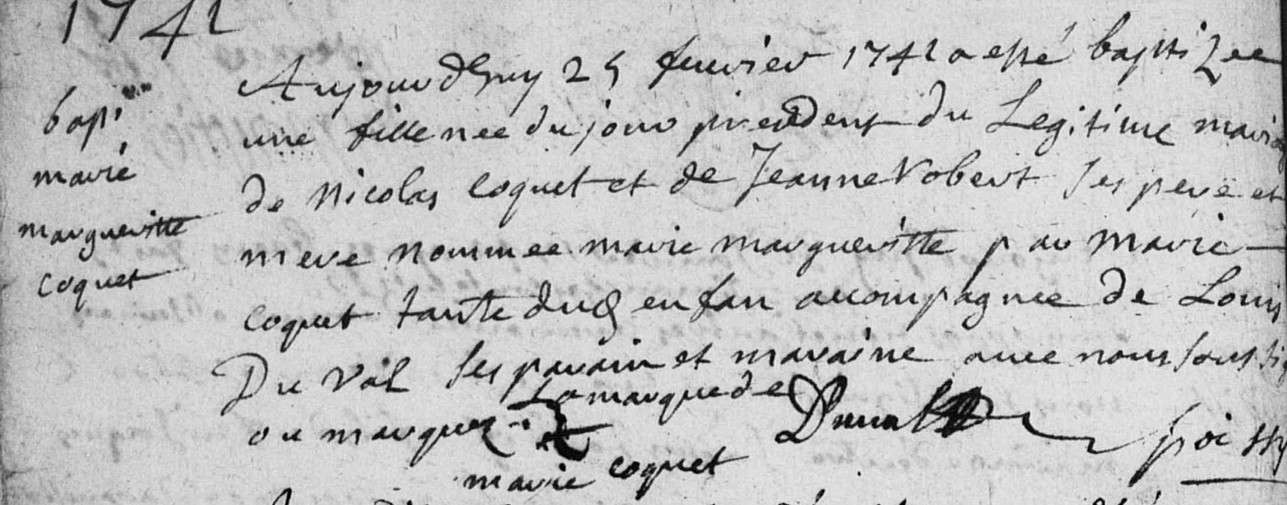 1742
bapt
marie
margueritte
coquet
Aujourdhuy 25 fevrier 1742 a esté baptizee
une fille nee du jour precedent du Legitime maria
de Nicolas Coquet et de Jeanne Vobert ses pere et
mere nommee marie margueritte par marie
coquet tante dud enfan accompagnee de Louis
Du Val ses parain et maraine avec nous sousig
ou marquez
La marque de
marie coquet
Duval